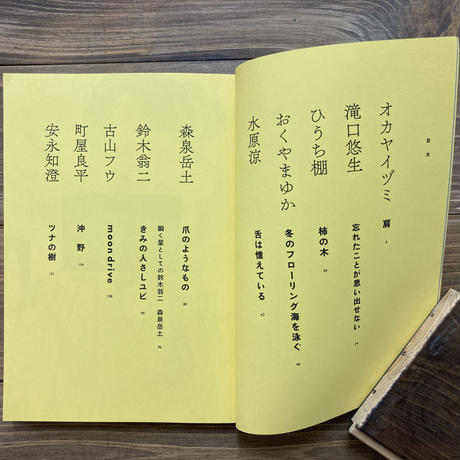 目次
オカヤイヅミ 肩 4
滝口悠生 忘れたことが思い出せない 14
ひうち棚 柿の木 24
おくやまゆか 冬のフローリング海を泳ぐ 40
水原涼 舌は憶えている 62
森泉岳土 爪のようなもの 80
瞬く星としての鈴木翁二 森泉岳土 96
鈴木翁二 きみの人さしユビ 99
古山フウ moondrive 108
町屋良平 沖野 124
安永知澄 ツナの樹